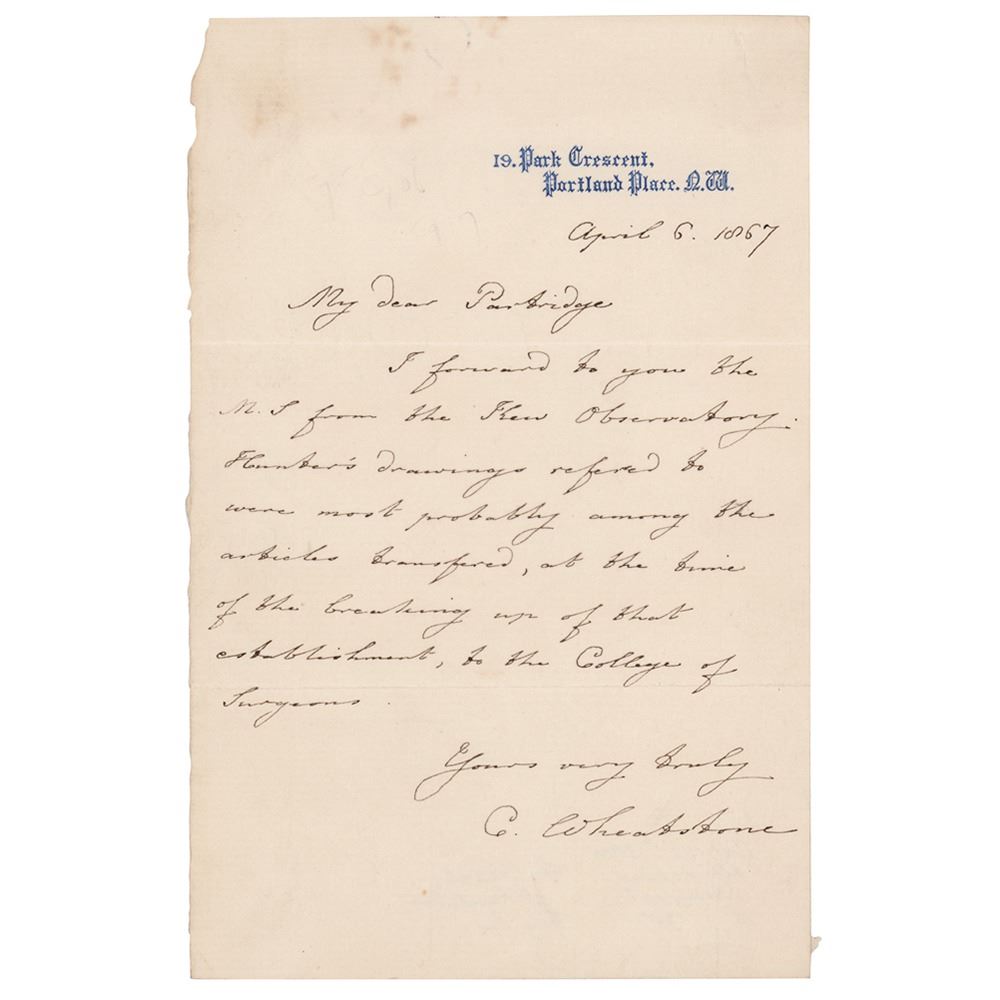 19. Park Crescent,
Portland Place. N.W.
April 6. 1867
My dear Partridge
I forward to you the
M.S from the Kew Observatory.
Hunter's drawings refered to
were most probably among the
articles transfered, at the time
of the breaking up of that
establishment, to the College of
Surgeons.
Yours very truly
C. Wheatstone